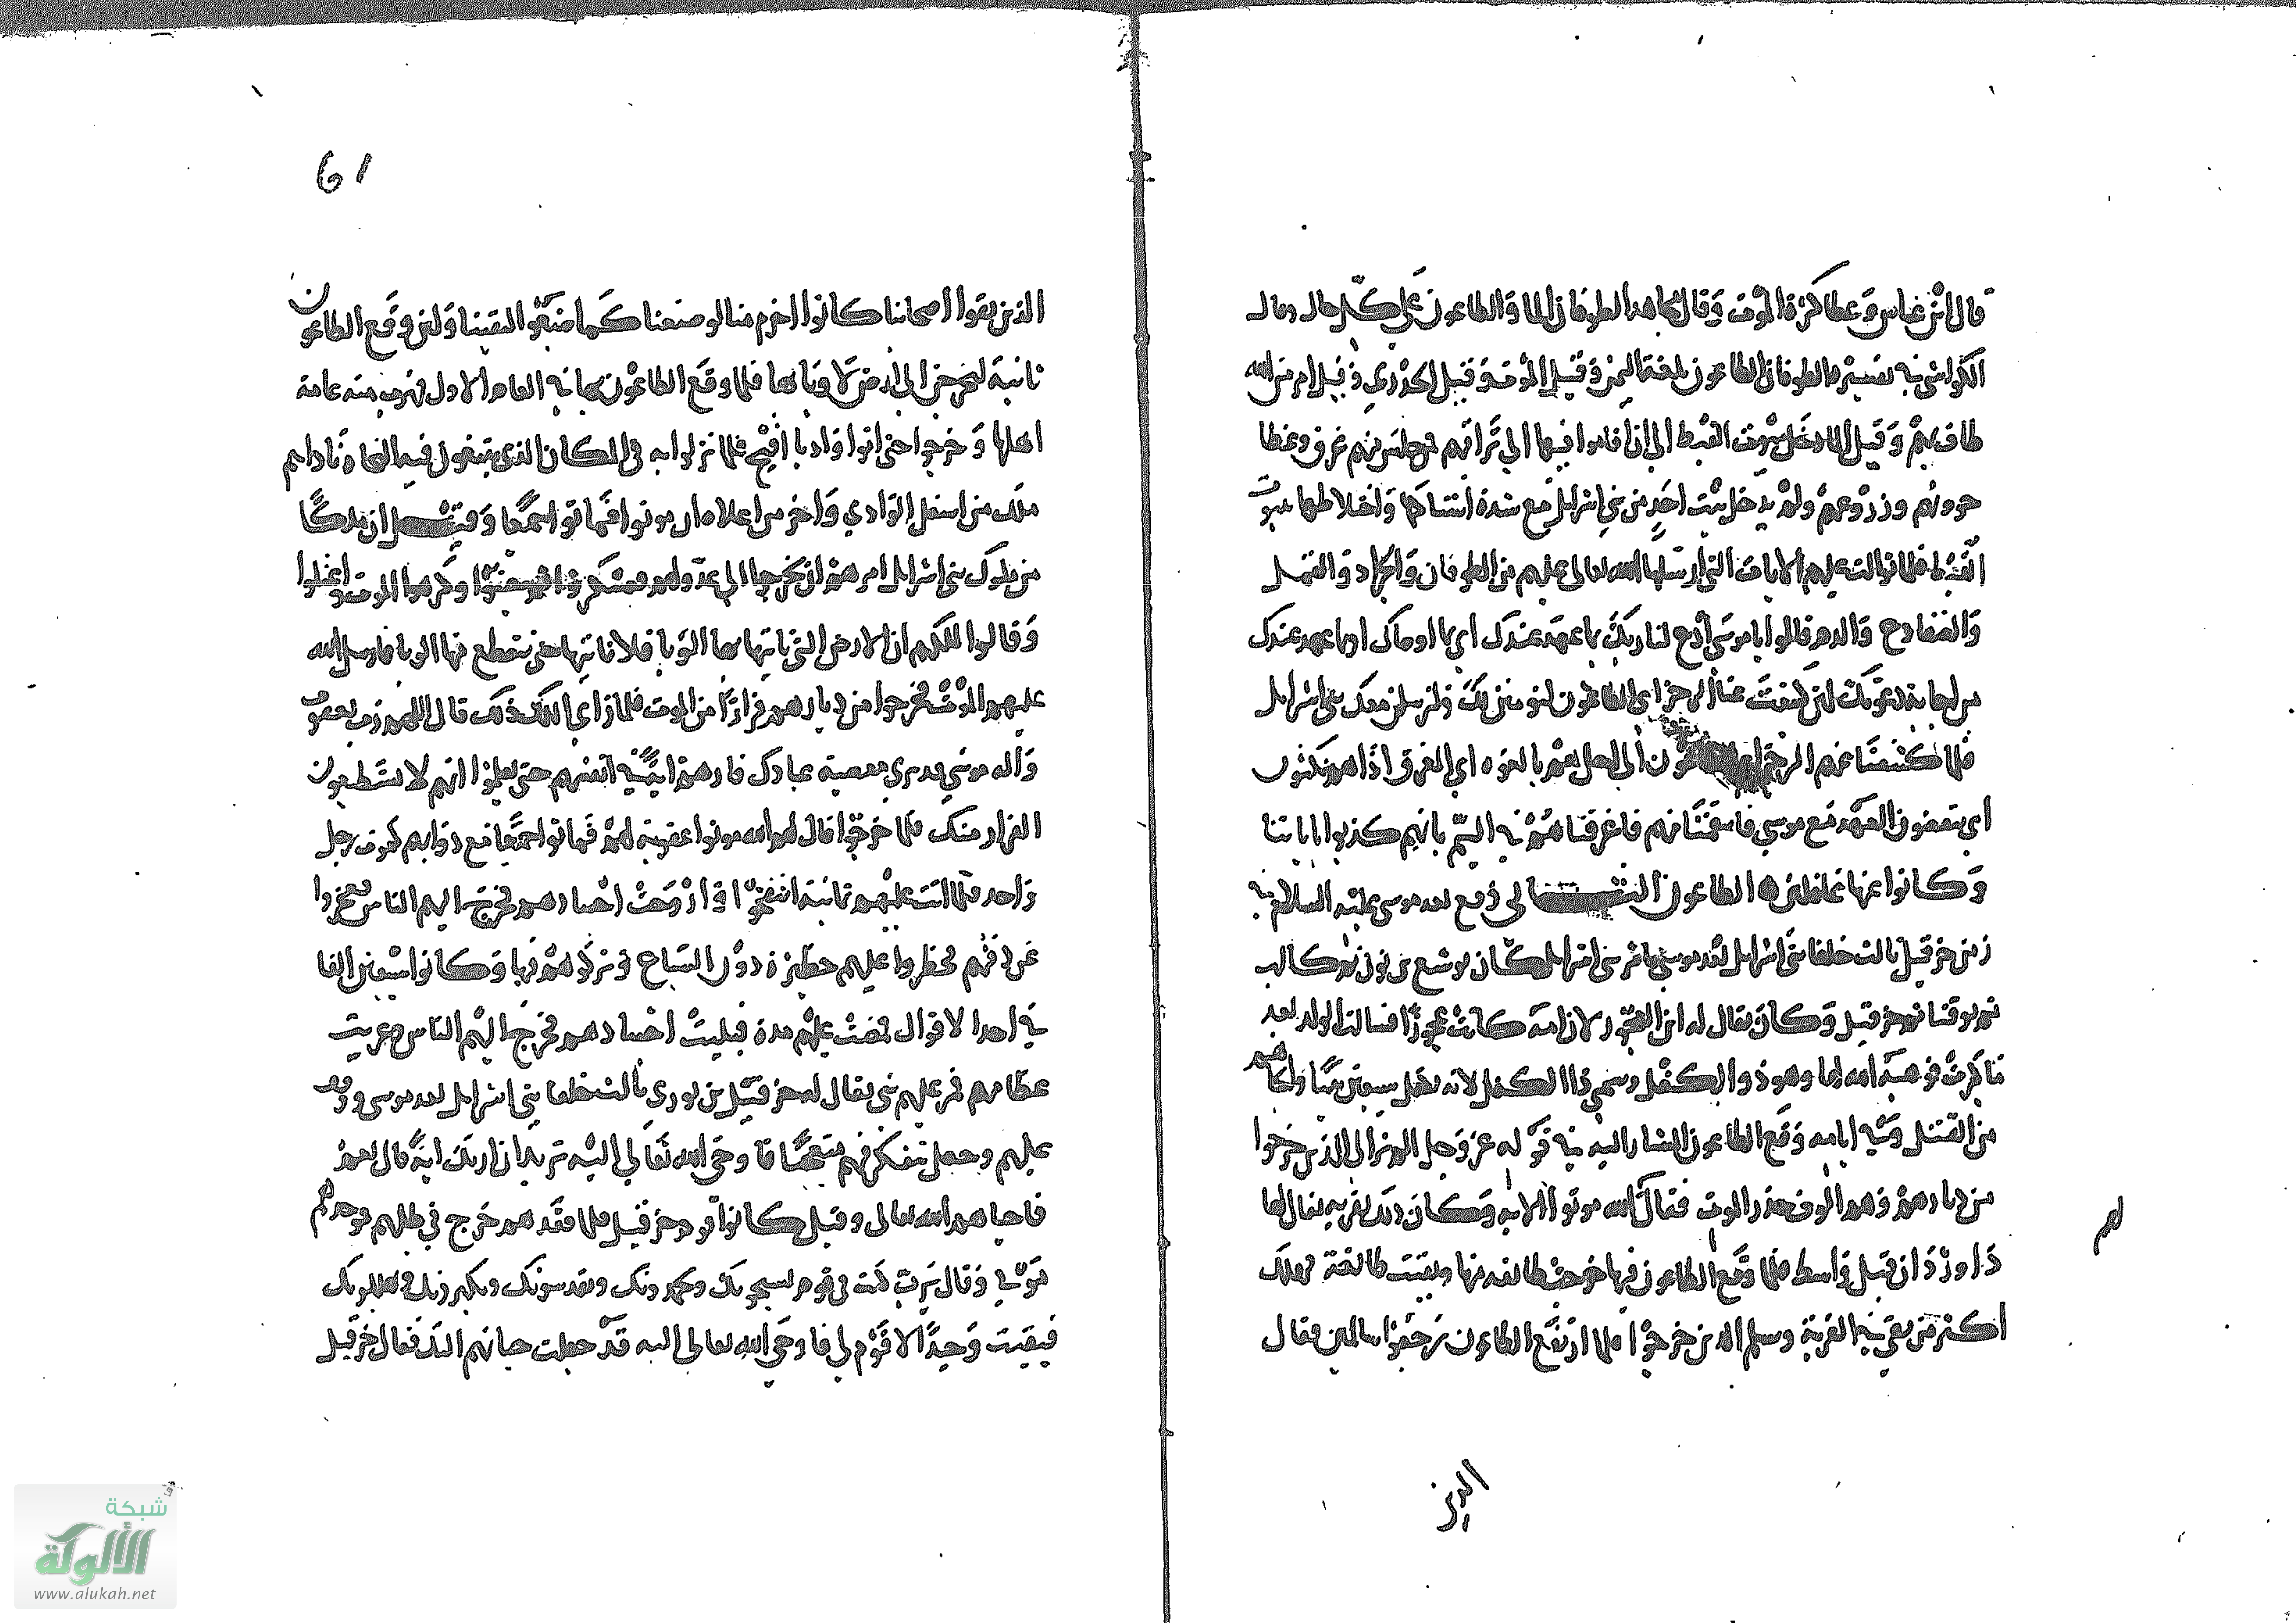 قال ابن عباس وعطا كثرة الموت وقال مجاهد الطوفان الما والطاعون على كل حال وقال
الكواشي في تفسيره الطوفان الطاعون بلغة اليمن وقيل الموت وقيل الجدري وقيل امر من الله
طاف بهم وقيل الما دخل بيوت القبط الى ان قاموا فيها الى تراقيهم فمن جلس منهم غرق وغطا
حروثهم وزروعهم ولم يدخل بيت احد من بني اسرايل مع شدة اشتباكها واختلاطها ببيوت
القبط فلما توالت عليهم الايات التي ارسلها الله تعالى عليهم من الطوفان والجراد والقمل
والضفادع والدم قالوا يا موسى ادع لنا ربك بما عهد عندك اي بما اوصاك او بما عهد عندك
من اجابة دعوتك لئن كشفت عنا الرجز اي الطاعون لنومنن لك ولنرسلن معك بني اسرايل
فلما كشفنا عنهم الرجز الى اجل هم بالغوه اي الغرق اذا هم ينكثون
اي ينقضون العهد مع موسى فانتقمنا منهم فاغرقناهم في اليم بانهم كذبوا باياتنا
وكانوا عنها غافلين ه الطاعون الثاني وقع بعد موسى عليه السلام في
زمن حزقيل ثالث خلفا بني اسرايل بعد موسى بامر بني اسرايل كان يوشع بن نون ثم كالب
بن يوقنا ثم حزقيل وكان يقال له ابن العجوز لان امه كانت عجوزا فسالت الولد بعد
ما كبرت فوهبه الله لها وهو ذو الكفل وسمي ذا الكفل لانه تكفل سبعين نبيا وانجاهم
من القتل وفي ايامه وقع الطاعون المشار اليه في قوله عز وجل الم تر الى الذين خرجوا
من ديارهم وهم الوف حذر الموت فقال لهم الله موتوا الاية وكان ذلك بقرية يقال لها
داوردان قبل واسط فلما وقع الطاعون فيها خرجت طائفة منها وبقيت طائفة فهلك
اكثر من بقي في القرية وسلم الذين خرجوا فلما ارتفع الطاعون رجعوا سالمين فقال
الذين
61
الذين بقوا اصحابنا كانوا احزم منا لو صنعنا كما صنعوا لبقينا ولئن وقع الطاعون
ثانية لنخرجن الى ارض لا وبا بها فلما وقع الطاعون بها في العام الاول هرب منه عامة
اهلها وخرجوا حتى اتوا واديا افيح فلما نزلوا به في المكان الذي يبتغون فيه النجاة ناداهم
ملك من اسفل الوادي واخر من اعلاه ان موتوا فماتوا جميعا وقيل ان ملكا
من ملوك بني اسرايل امرهم ان يخرجوا الى عدوهم فعسكروا ثم جبنوا وكرهوا الموت واعتلوا
وقالوا لملكهم ان الارض التي ناتيها بها الوبا فلا ناتيها حتى ينقطع منها الوبا فارسل الله
عليهم الموت فخرجوا من ديارهم فرارا من الموت فلما راى الملك ذلك قال اللهم رب يعقوب
واله موسى قد ترى معصية عبادك فارهم اية في انفسهم حتى يعلموا انهم لا يستطيعون
الفرار منك فلما خرجوا قال لهم الله موتوا عقوبة لهم فماتوا جميعا مع دوابهم كموت رجل
واحد فما اتت عليهم ثمانية انتفخوا واروحت اجسادهم فخرج اليهم الناس فعجزوا
عن دفنهم فحظروا عليهم حظيرة دون السباع وتركوهم فيها وكانوا سبعين الفا
في احد الاقوال فمضت عليهم مدة فبليت اجسادهم فخرج اليهم الناس وعريت
عظامهم فمر عليهم نبي يقال له حزقيل بن بوري ثالث خلفا بني اسرايل بعد موسى ووقف
عليهم وجعل يتفكر فيهم متعجبا فاوحى الله تعالى اليه تريد ان اريك اية قال نعم
فاحياهم الله تعالى وقيل كانوا قوم حزقيل فلما فقدهم خرج في طلبهم فوجدهم
موتى وقال يرب كنت في قوم يسبحونك ويحمدونك ويقدسونك ويكبرونك ويهللونك
فبقيت وحيدا لا قوم لي فاوحى الله تعالى اليه قد جعلت حياتهم اليك فقال حزقيل
شبكة
الألوكة
www.alukah.net